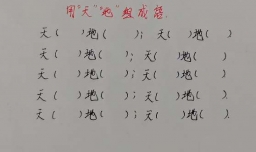 用"天""地"组成语.
天(  )地(  ); 天(  )地(  )
天(  )地(  ); 天(  )地(  )
天(  )地(  ); 天(  )地(  )
天(  )地(  ); 天(  )地(  )
天(  )地(  ); 天(  )地(  )